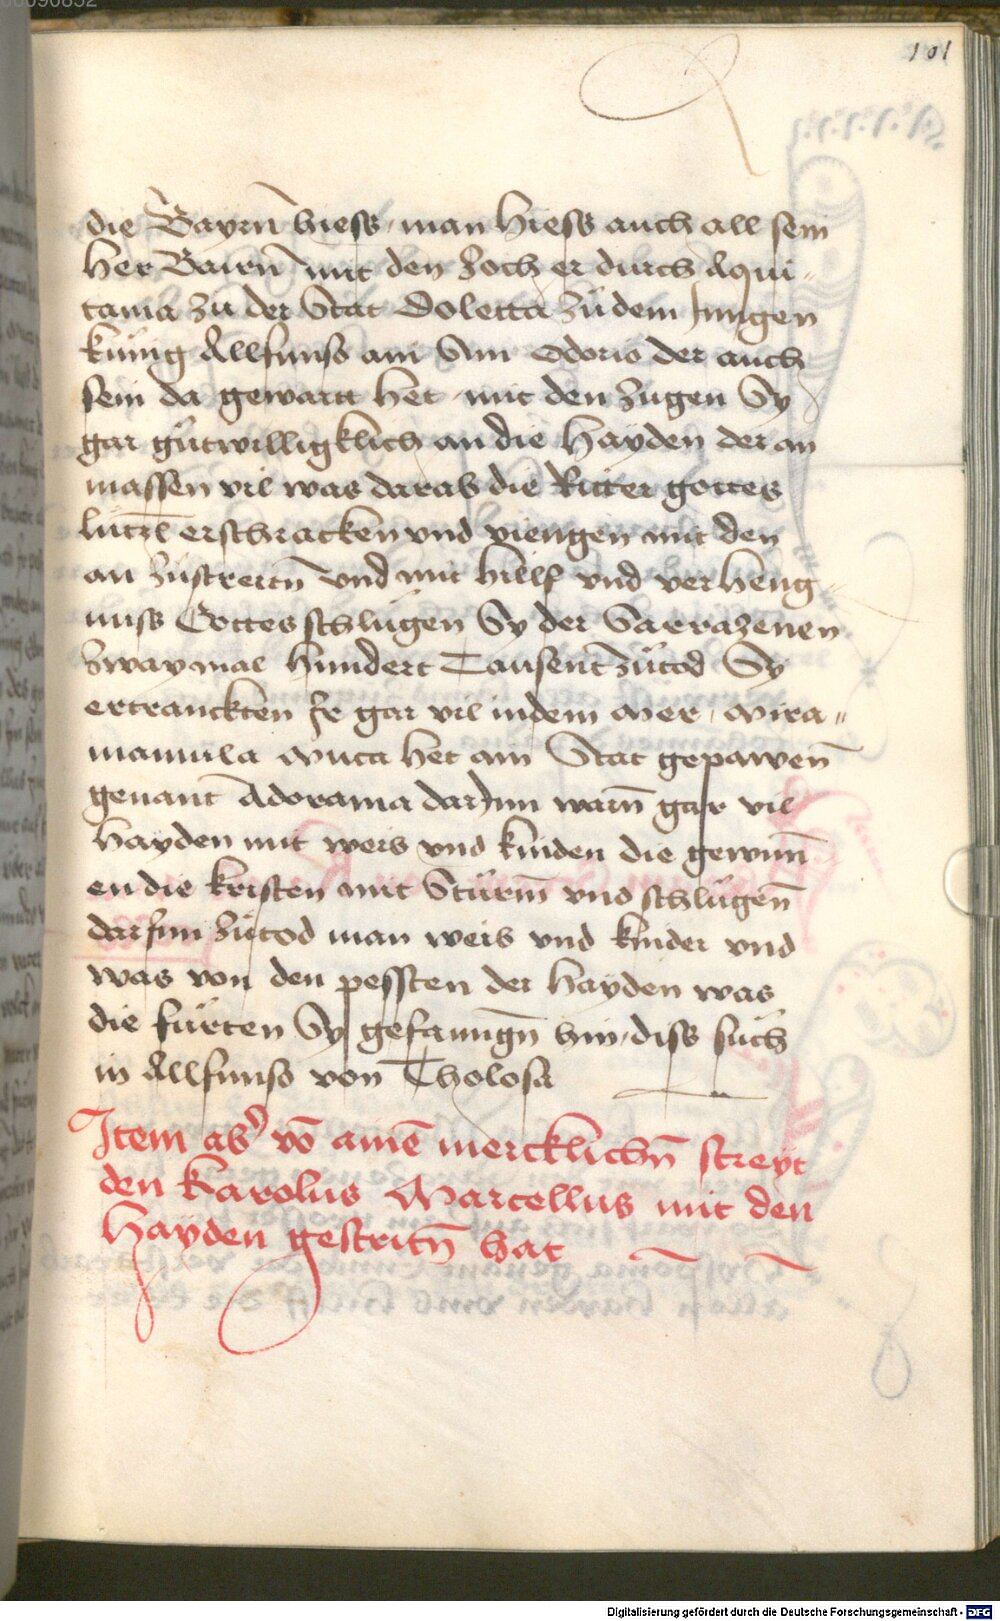 101
die Bayrn̄ hiess / man hiess auch all sein
her Bairn̄ mit den Zoch er durch Aqui-
tania zu der Stat Doletta zu dem Jungen
künig Allfunso ain Sun Odorio der auch
sein da gewartt het mit den zugen Sy
gar gütwilligklich an die hayden der an
massen vil was darab die Ritter gottes
lützl erschracken vnd viengen mit den
an züstreitn̄ vnd mit hillf vnd verheng-
nuss Gottes schlügen Sy der Sarrazenen
Zway mal hundert Tausent zütod Sy
ertranckten Jr gar vil indem Mer / Mira-
mamula Muca het ain Stat gepawen̄
genant Adorama darJnn warn̄ gar vil
hayden mit weib vnd kinden die gewun̄
en die kristen mit Stürm̄ vnd schlügen̄
darJnn zütod man weib vnd kinder vnd
was von den pessten der hayden was
die fürten Sy gefanngn̄ hin / diss such
in Allfunso von Tholosa
Item ab' vō ainē mercklichn̄ streyt
den karolus Marcellus mit den
hayden gestritn̄ hat
Digitalisierung gefördert durch die Deutsche Forschungsgemeinschaft - DFG